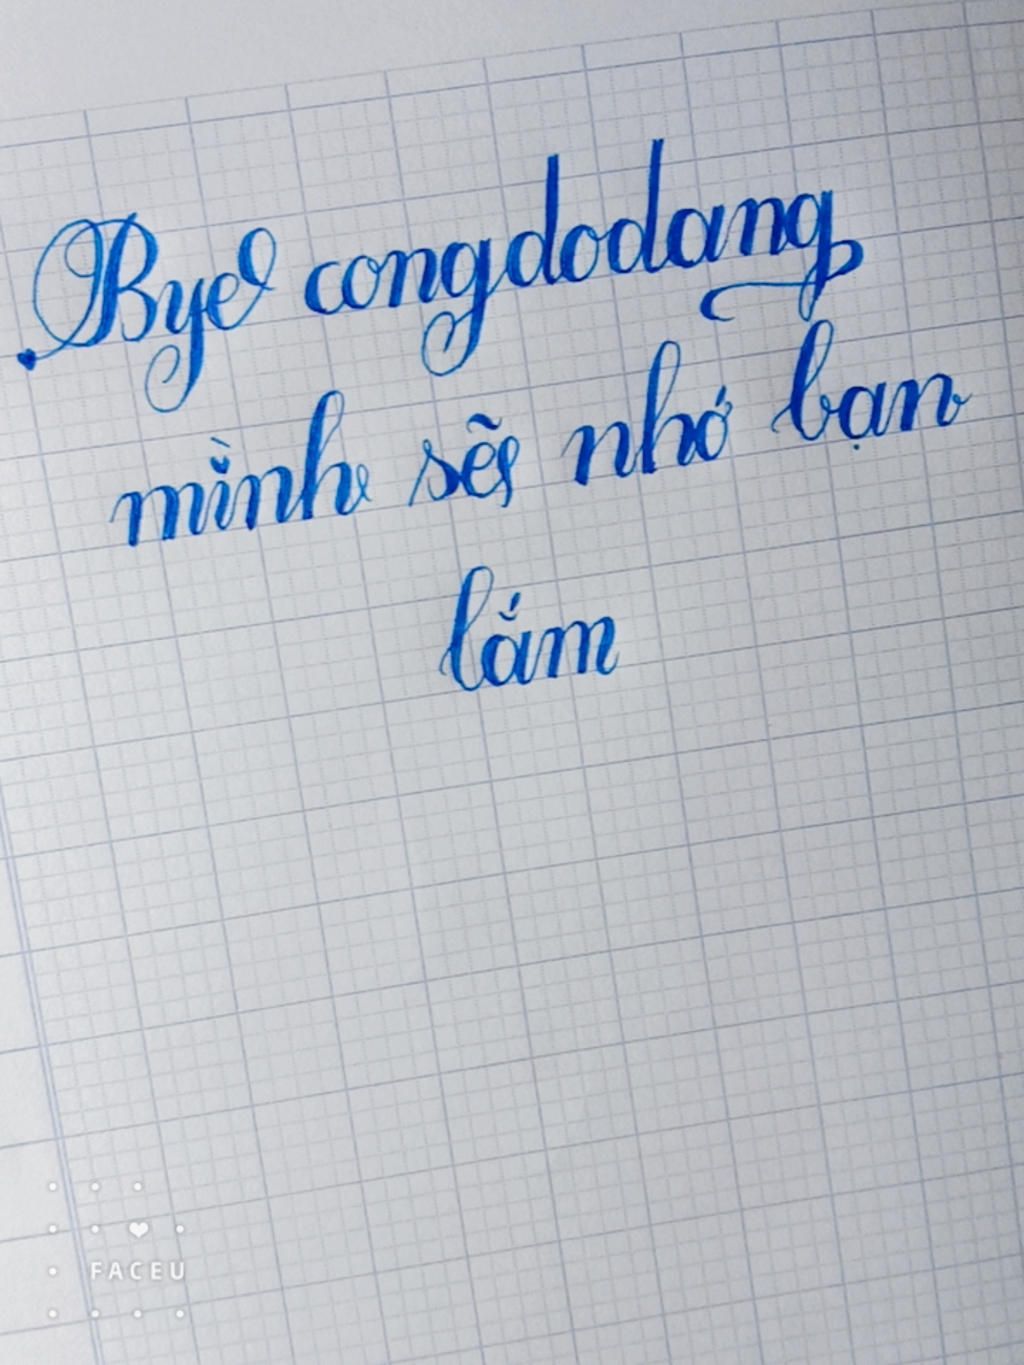 Bye congdodang
mình sẽ nhớ bạn
lắm
FACEU